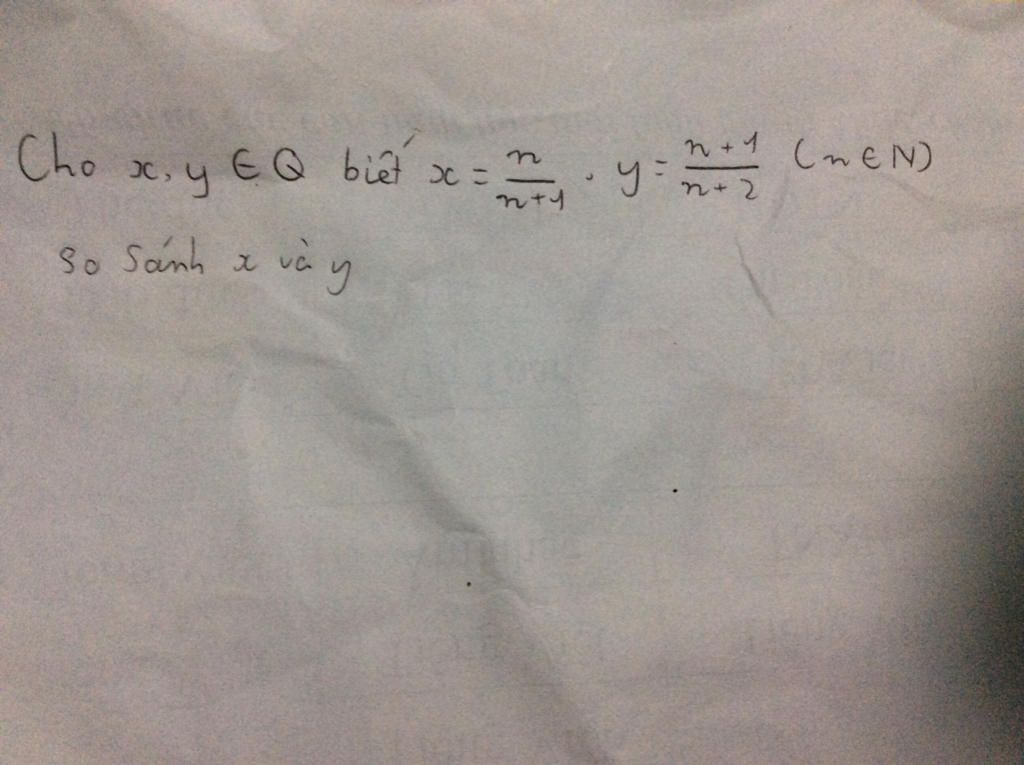 Cho x, y ∈ Q biết x = n/(n+1) . y = (n+1)/(n+2) (n ∈ N)
so sánh x và y